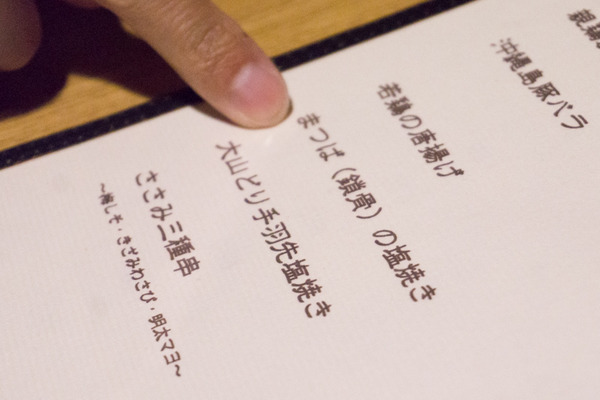 親鶏
沖縄島豚バラ
若鶏の唐揚げ
まつば（鎖骨）の塩焼き
大山どり手羽先塩焼き
ささみ三種串
～梅しそ・きざみわさび・明太マヨ～